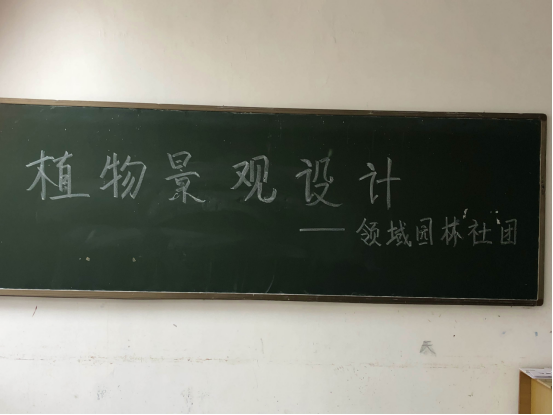 植物景观设计
——领域园林社团